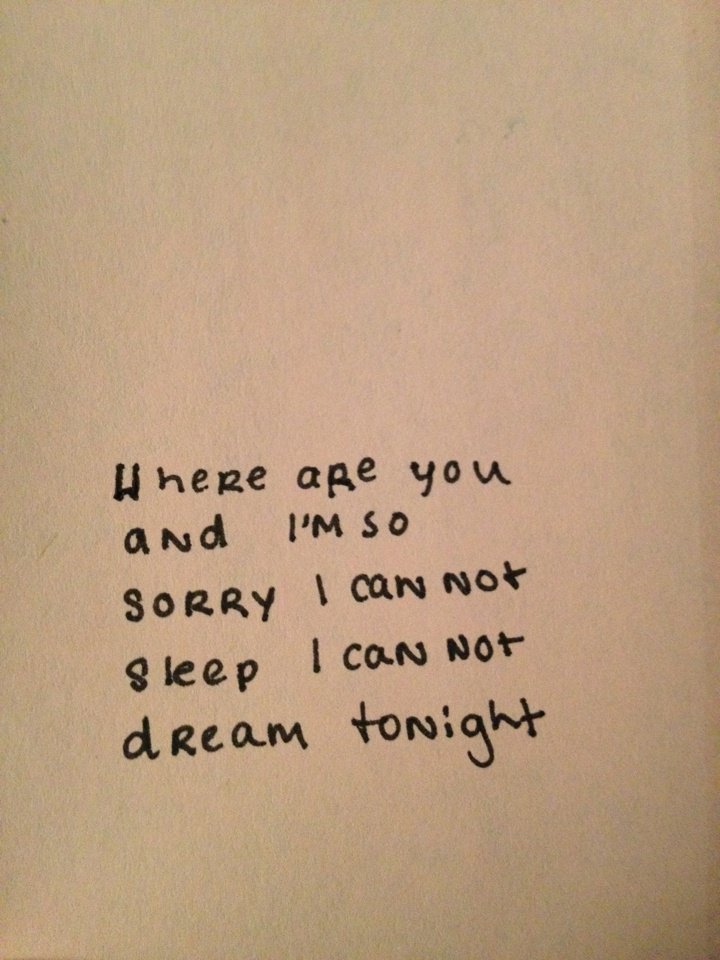 Where are you
and I'm so
sorry I can not
sleep I can not
dream tonight